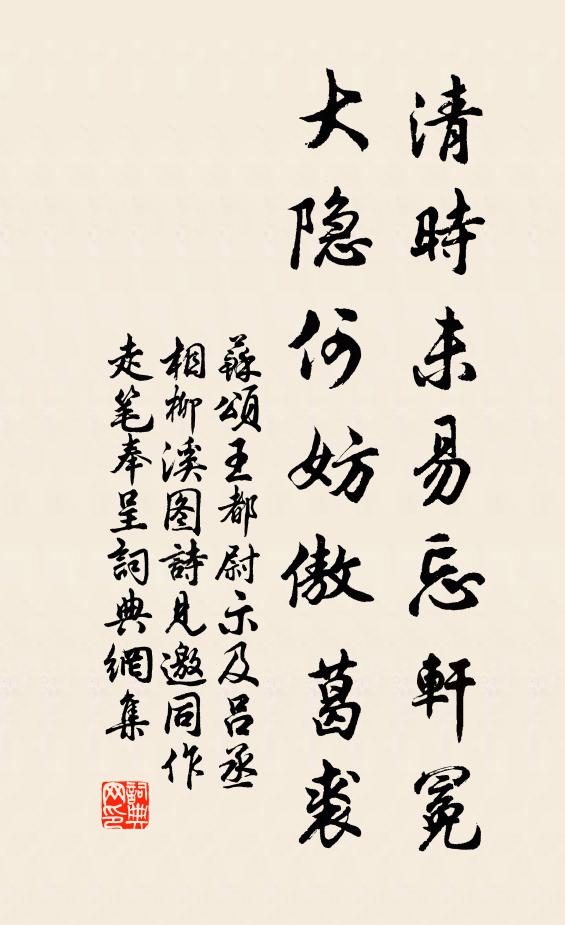 清時未易忘軒冕
大隐何妨傲葛裘
蘇頌王都尉示及吕丞
相柳溪图詩見邀同作
走笔奉呈詞典網集
詞典
网印